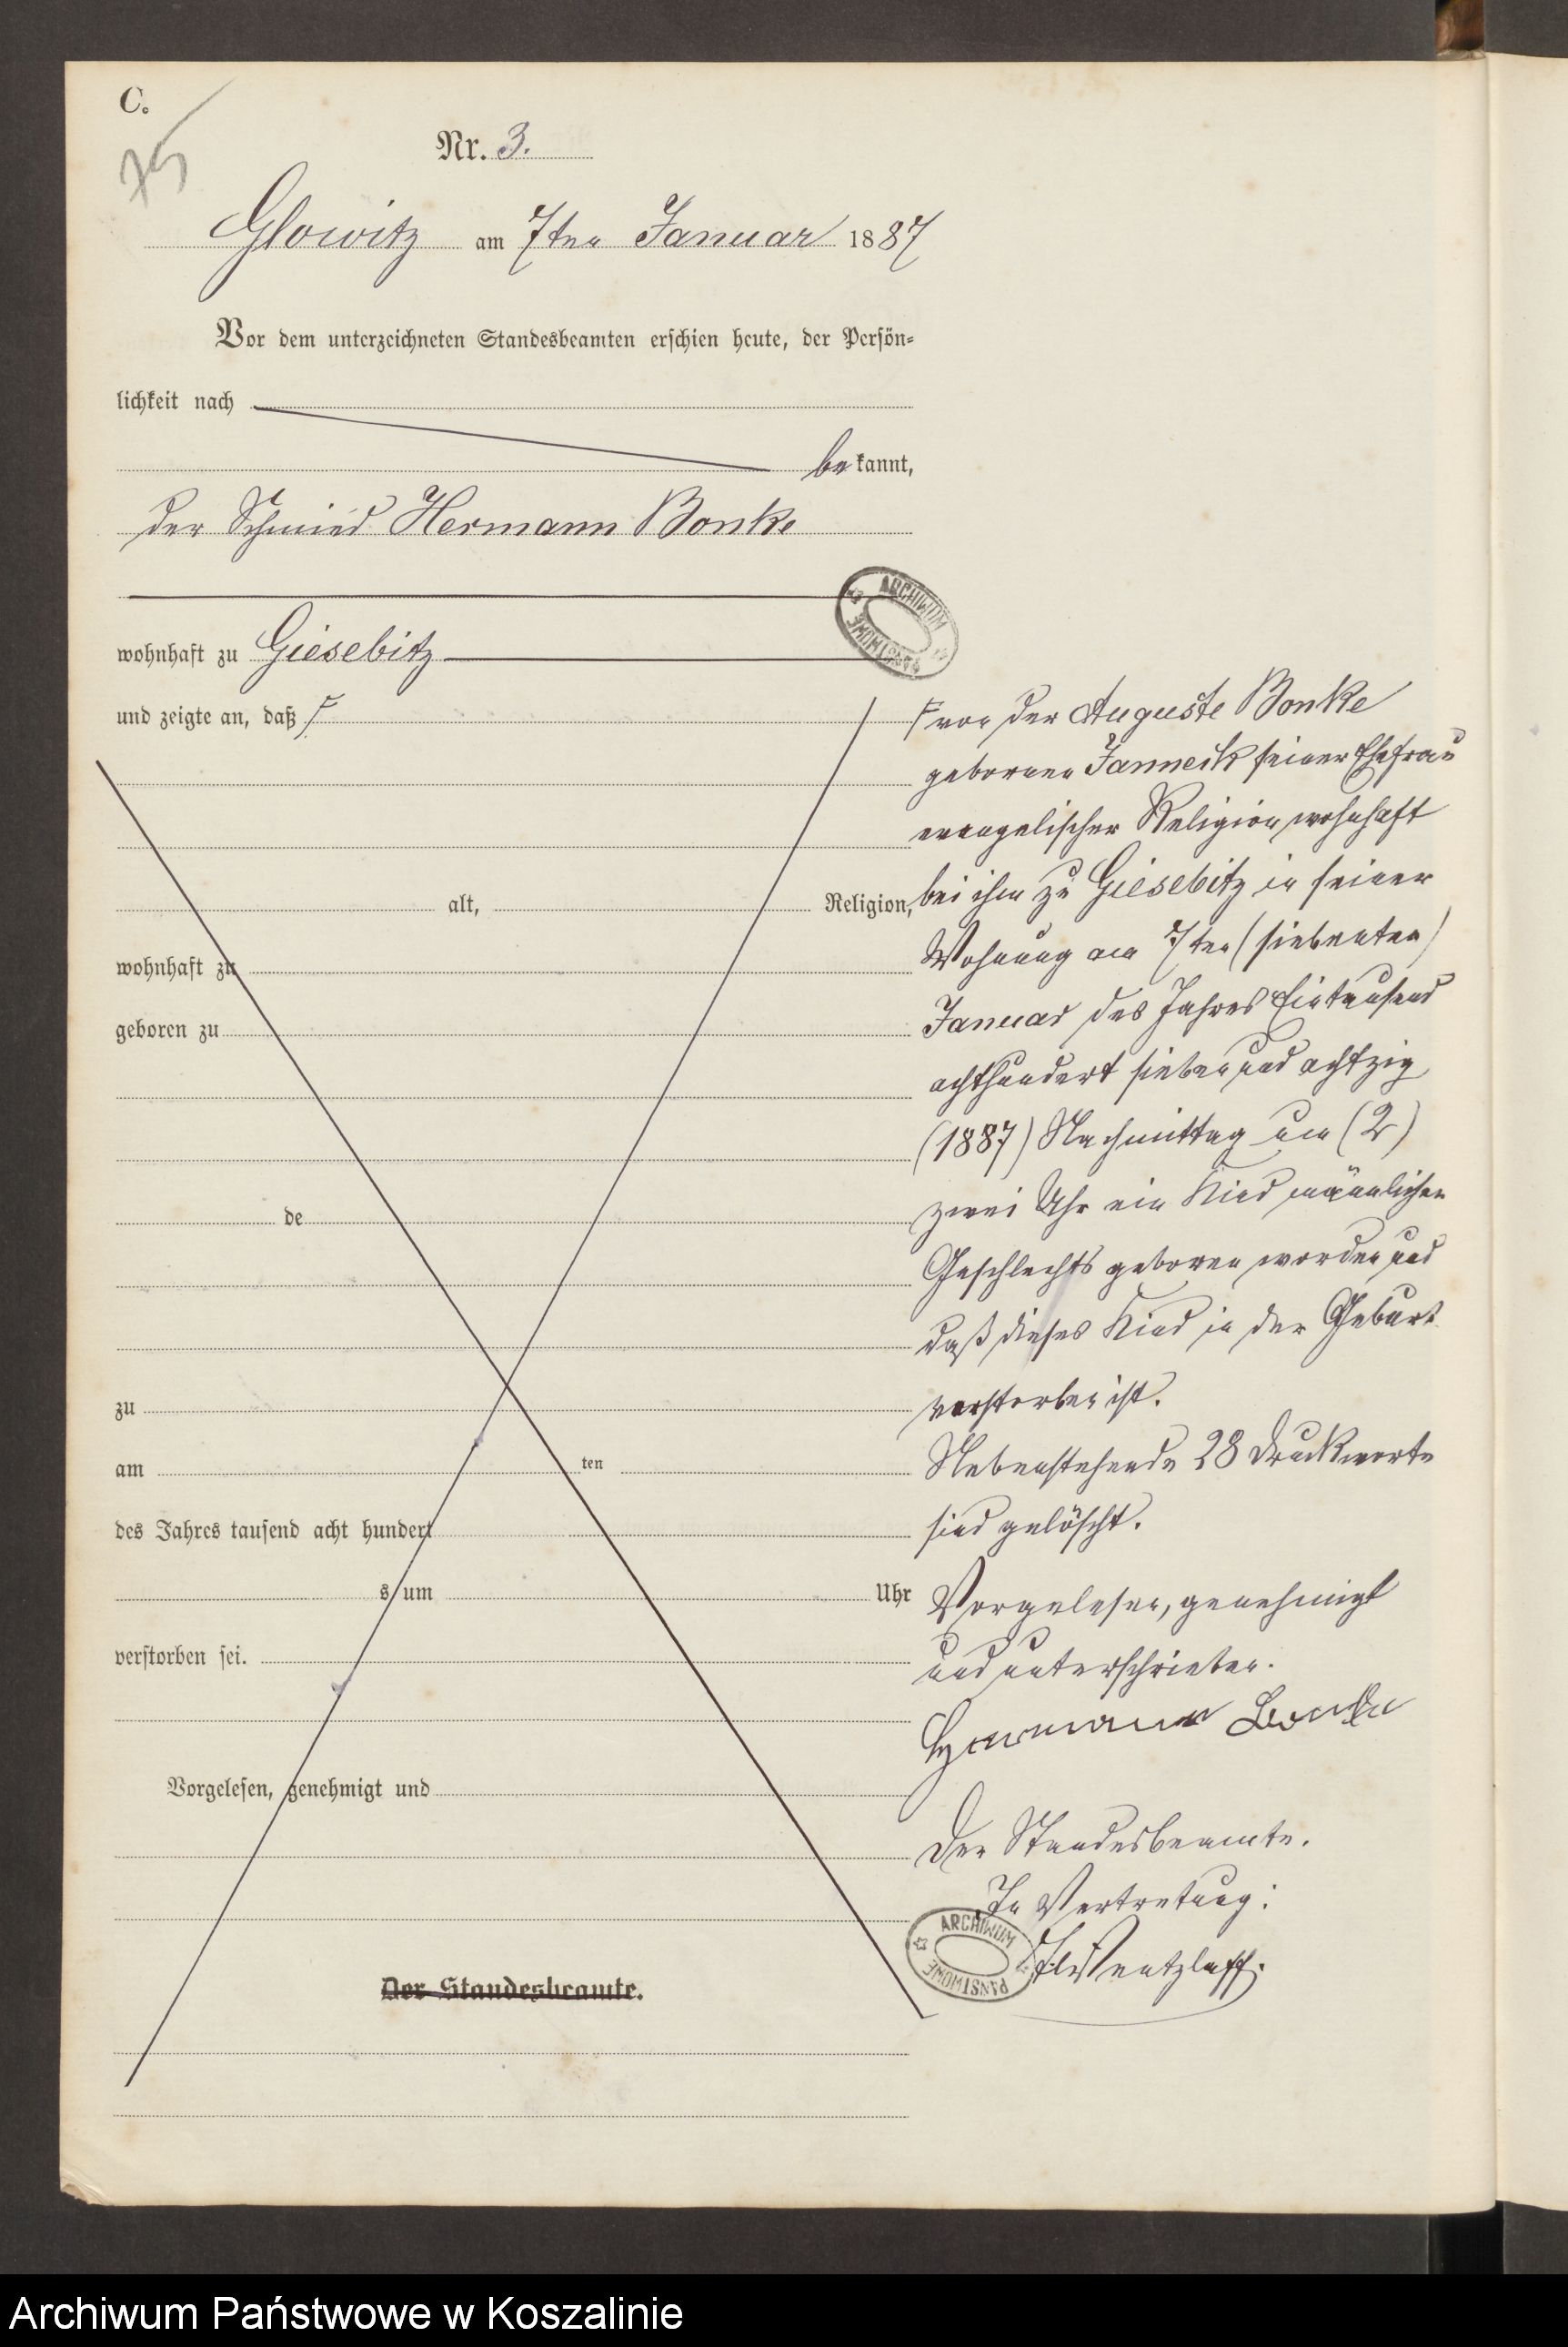 C.
75
Nr. 3.
Glowitz am 7ten Januar 1887
Vor dem unterzeichneten Standesbeamten erschien heute, der Persön-
lichkeit nach
bekannt,
der Schmied Hermann Bonke
ARCHIWUM PAŃSTWOWE
wohnhaft zu Giesebitz
und zeigte an, daß
alt, Religion,
wohnhaft zu
geboren zu
de
zu
am ten
des Jahres tausend acht hundert
s um Uhr
verstorben sei.
Vorgelesen, genehmigt und
Der Standesbeamte.
von der Auguste Bonke
geborenen Janneck seiner Ehefrau
evangelischer Religion, wohnhaft
bei ihm zu Giesebitz in seiner
Wohnung am 7ten (siebenten)
Januar des Jahres Eintausend
achthundert sieben und achtzig
(1887) Nachmittag um (2)
zwei Uhr ein Kind männlichen
Geschlechts geboren worden und
daß dieses Kind in der Geburt
verstorben ist.
Nebenstehende 28 Druckworte
sind gelöscht.
Vorgelesen, genehmigt
und unterschrieben.
Hermann Bonke
Der Standesbeamte.
In Vertretung:
Wentzlaff.
ARCHIWUM PAŃSTWOWE
Archiwum Państwowe w Koszalinie